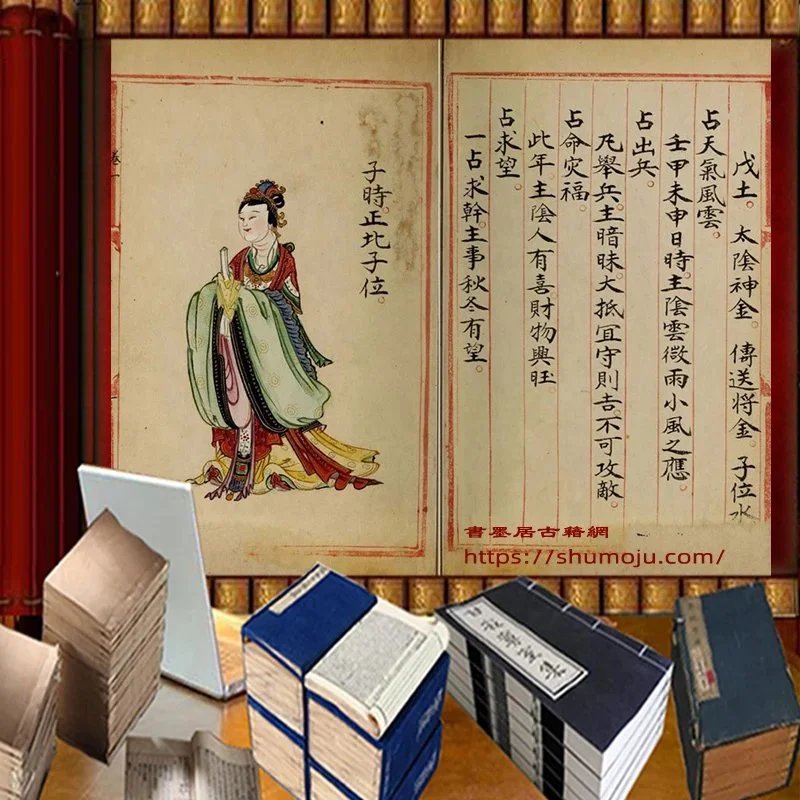 戊土。太陰神金。傳送将金。子位水
占天氣風雲。
壬甲未申日時。主陰雲微雨小風之應。
占出兵。
凡舉兵。主暗昧。大抵宜守則吉。不可攻敵。
占命灾福。
此年。主陰人有喜。財物興旺。
占求望。
一占求幹。主事秋冬有望。
子時。正北子位。
卷一
書墨居古籍網
https://shumoju.com/